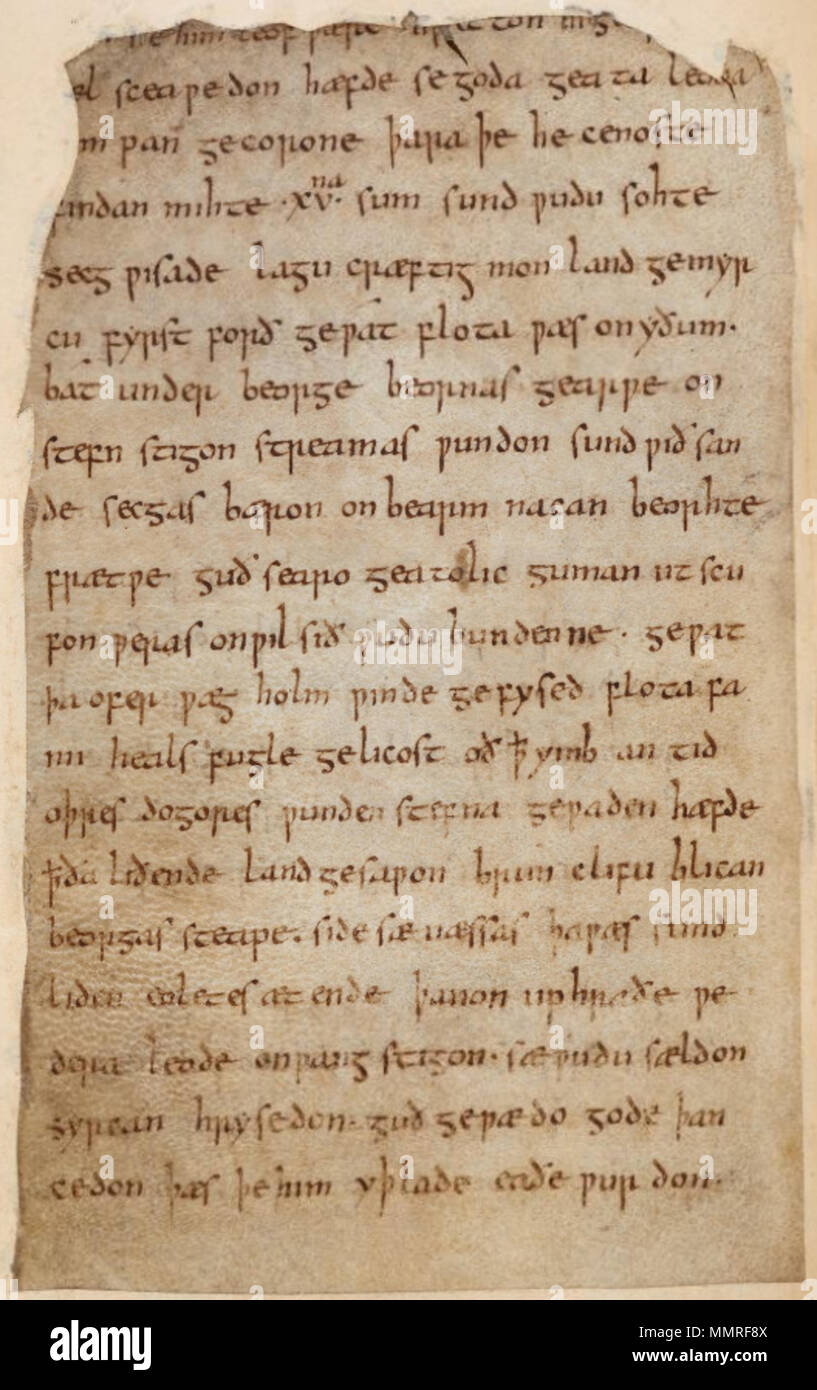 him leof ƿære
sceaƿedon hæfde se goda geata leoda
m pan gecorone þara þe he cenoste
findan mihte ·xvna· sum sund ƿudu sohte
secg ƿisade lagu cræftig mon land gemyr
cu fyrst forð geƿat flota ƿæs on yðum·
bat under beorge beornas gearƿe on
stefn stigon streamas ƿundon sund ƿið san
de secgas bæron on bearm nacan beorhte
frætƿe guð searo geatolic guman ut scu
fon ƿeras on ƿil sið ƿudu bundenne · geƿat
þa ofer ƿæg holm ƿinde gefysed flota fa
mi heals fugle gelicost oð ꝥ ymb an tid
oþres dogores ƿunden stefna geƿaden hæfde
ꝥ ða liðende land gesaƿon brim clifu blican
beorgas steape. side sæ næssas þa ƿæs sund
liden eoletes æt ende þanon up hraðe ƿe
dera leode on ƿang stigon· sæ ƿudu sældon
syrcan hrysedon· guð geƿædo gode þan
cedon þæs þe him yþlade eaðe ƿurdon.
alamy
MMRF8X
www.alamy.com